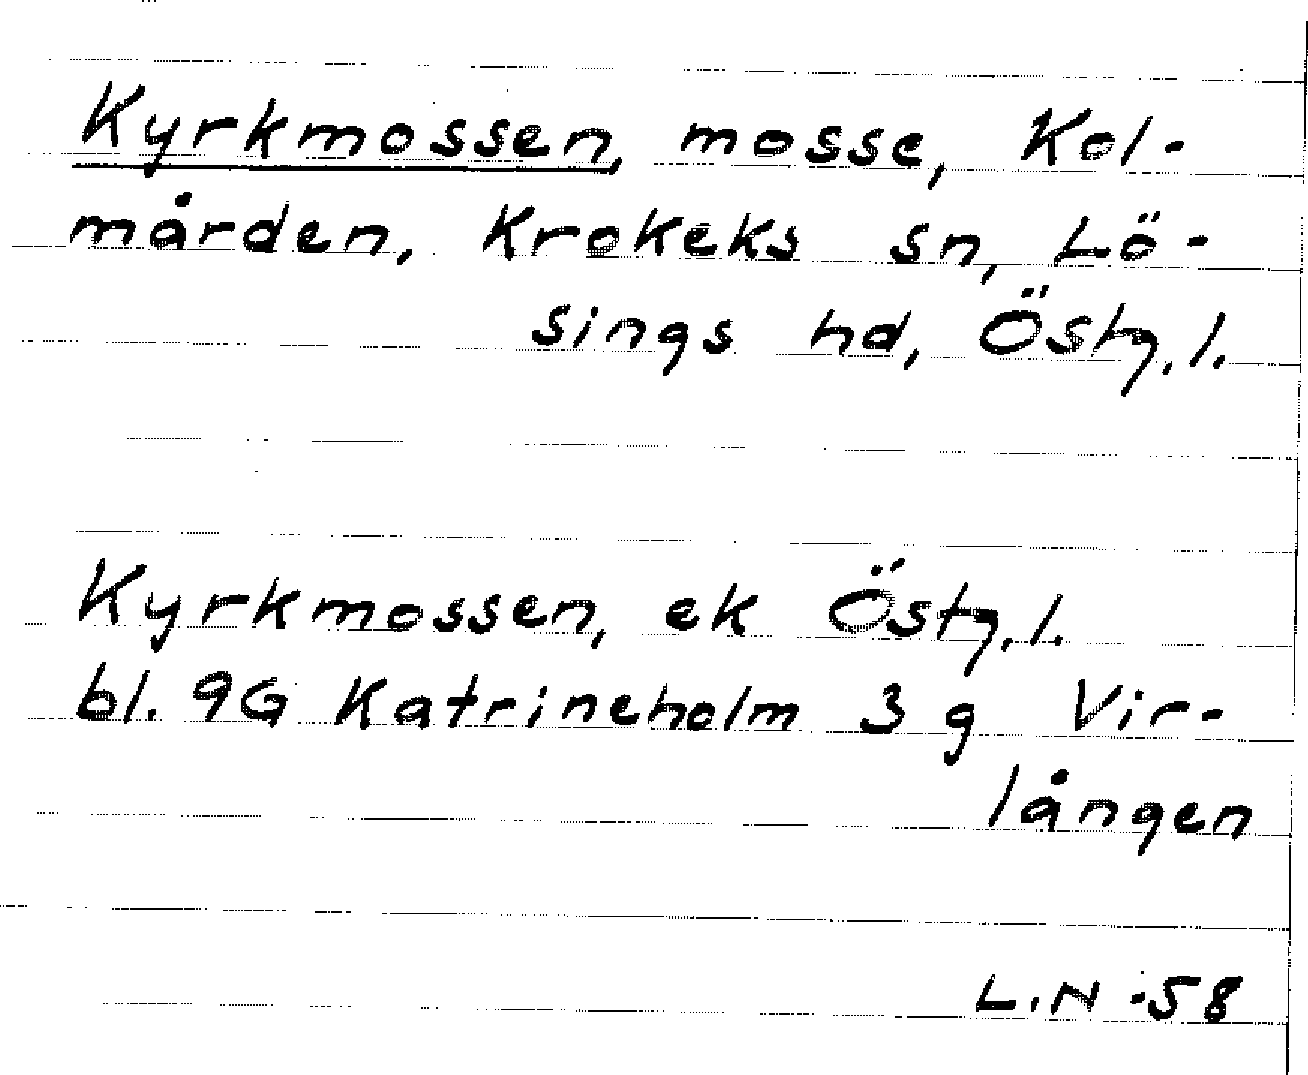 Kyrkmossen, mosse, Kol-
mården, Krokeks sn, Lö-
sings hd, Östg. l.
Kyrkmossen, ek Östg. l.
bl. 9G Katrineholm 3 g Vir-
lången
L.N -58